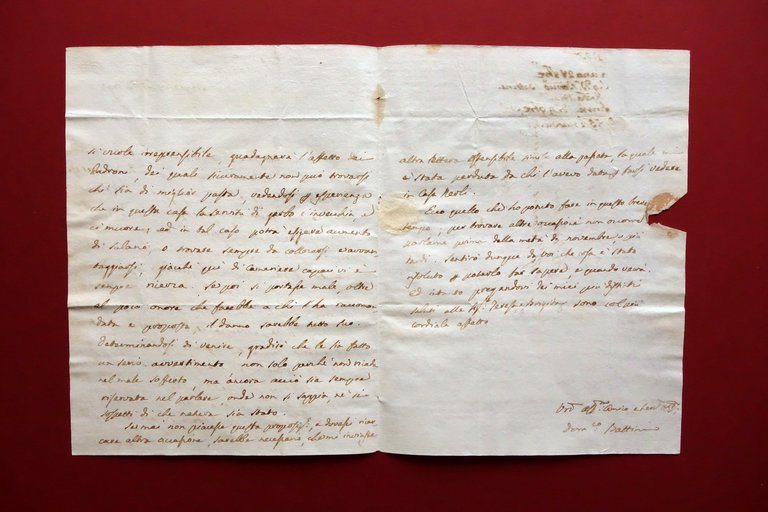 si vuole irreprensibile, guadagnarà l'affetto dei
Padroni, dei quali sicuramente non può trovarsi
chi sia di miglior pasta, vedendosi p esperienza
che in questa casa la servitù di garbo s'invecchia, e
ci muore; ed in tal caso potrà essere aumento
di salario, o trovare sempre da collocarsi
taggiosi; giacchè qui di cameriere capaci vi è
sempre ricerca. Se poi si portasse male, oltre
al poco onore che farebbe a chi l'ha raccoman
data e proposta, il danno sarebbe tutto suo.
Determinandosi di venire, gradirò che le sia fatto
un serio avvertimento non solo perchè non ricada
nel male sofferto, ma ancora acciò sia sempre
riservata nel parlare, onde non si sappia, nè si
sospetti di che natura sia stato.
Se mai non piacesse questa proposta, e dovessi ricer
care altra occasione, sarebbe necessario, che mi inviaste
altra lettera ostensibile simile alla passata, la quale mi
è stata perduta da chi l'aveva data p farsi vedere
in Casa Paoli.
Ecco quello che ho potuto fare in questo breve
tempo; per trovare altre occasioni non occorre
parlarne prima della metà di novembre, o più
tardi. Sentirò dunque da voi che cosa è stato
risoluto p poterlo far sapere, e quando verrà.
Ed intanto pregandovi dei miei più distinti
saluti alle Sig.e Teresa e sono col più
cordiale affetto
Dom.co Battini